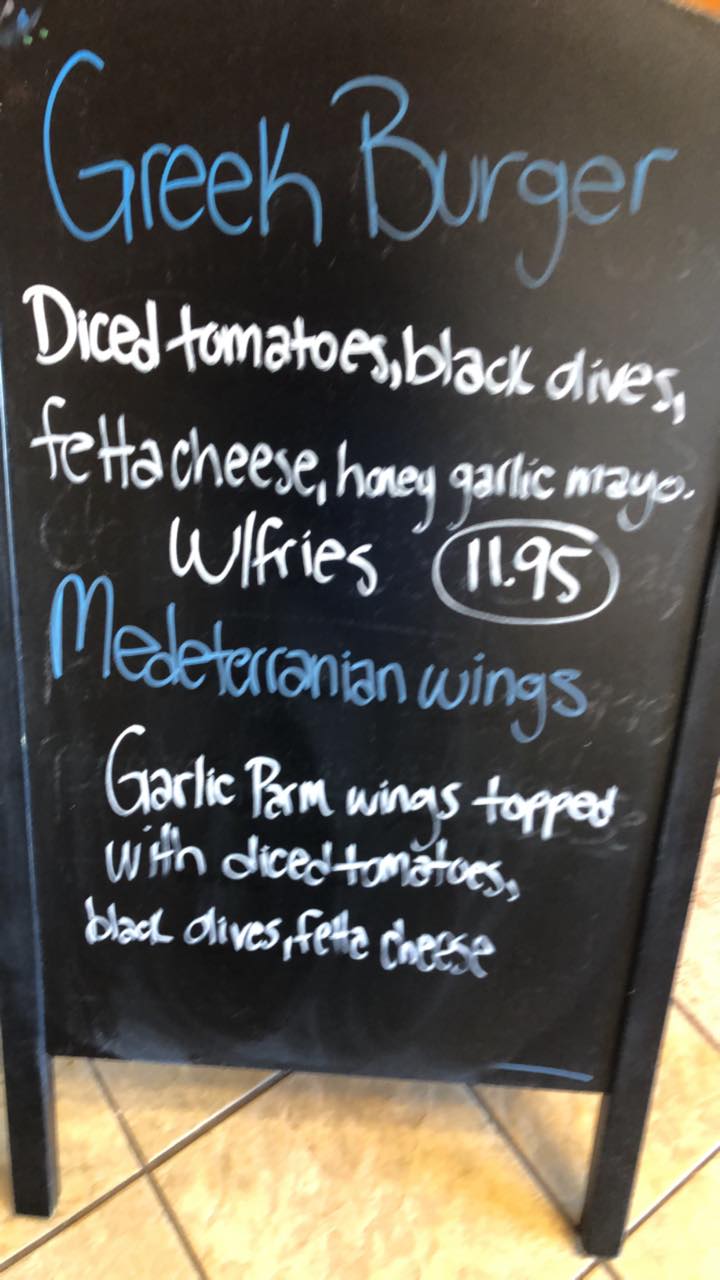 Greek Burger
Diced tomatoes, black olives,
fetta cheese, honey garlic mayo.
W/fries 11.95
Medeterranian wings
Garlic Parm wings topped
with diced tomatoes,
black olives, fetta cheese